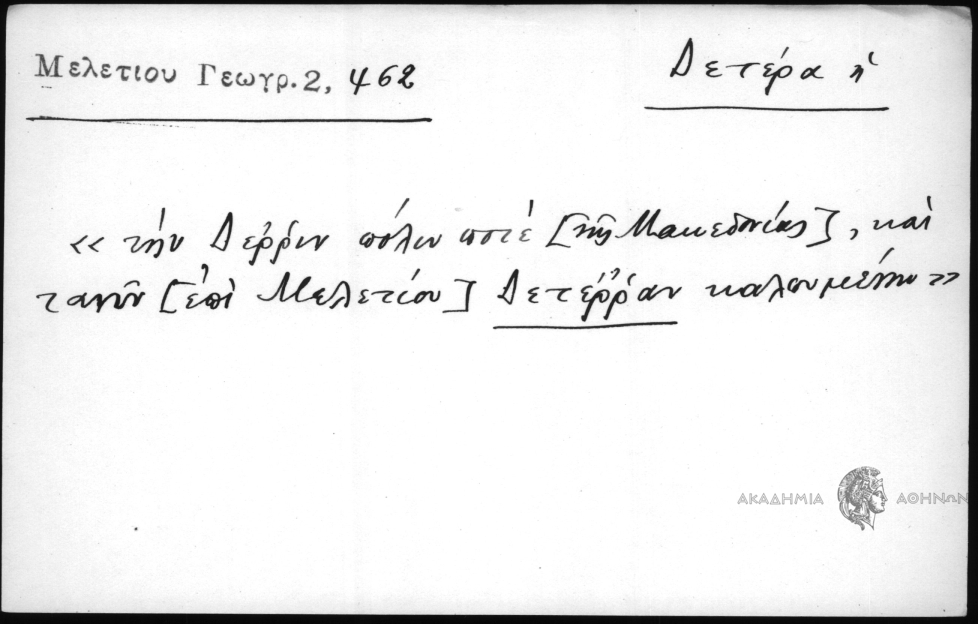 Μελετιου Γεωγρ. 2, 462
Δετέρα ἡ
« τὴν Δεῤῥιν πόλιν ποτὲ [τῆς Μακεδονίας], καὶ
τανῦν [ἐπὶ Μελετίου] Δετέῤῥαν καλουμένην »
ΑΚΑΔΗΜΙΑ ΑΘΗΝΩΝ